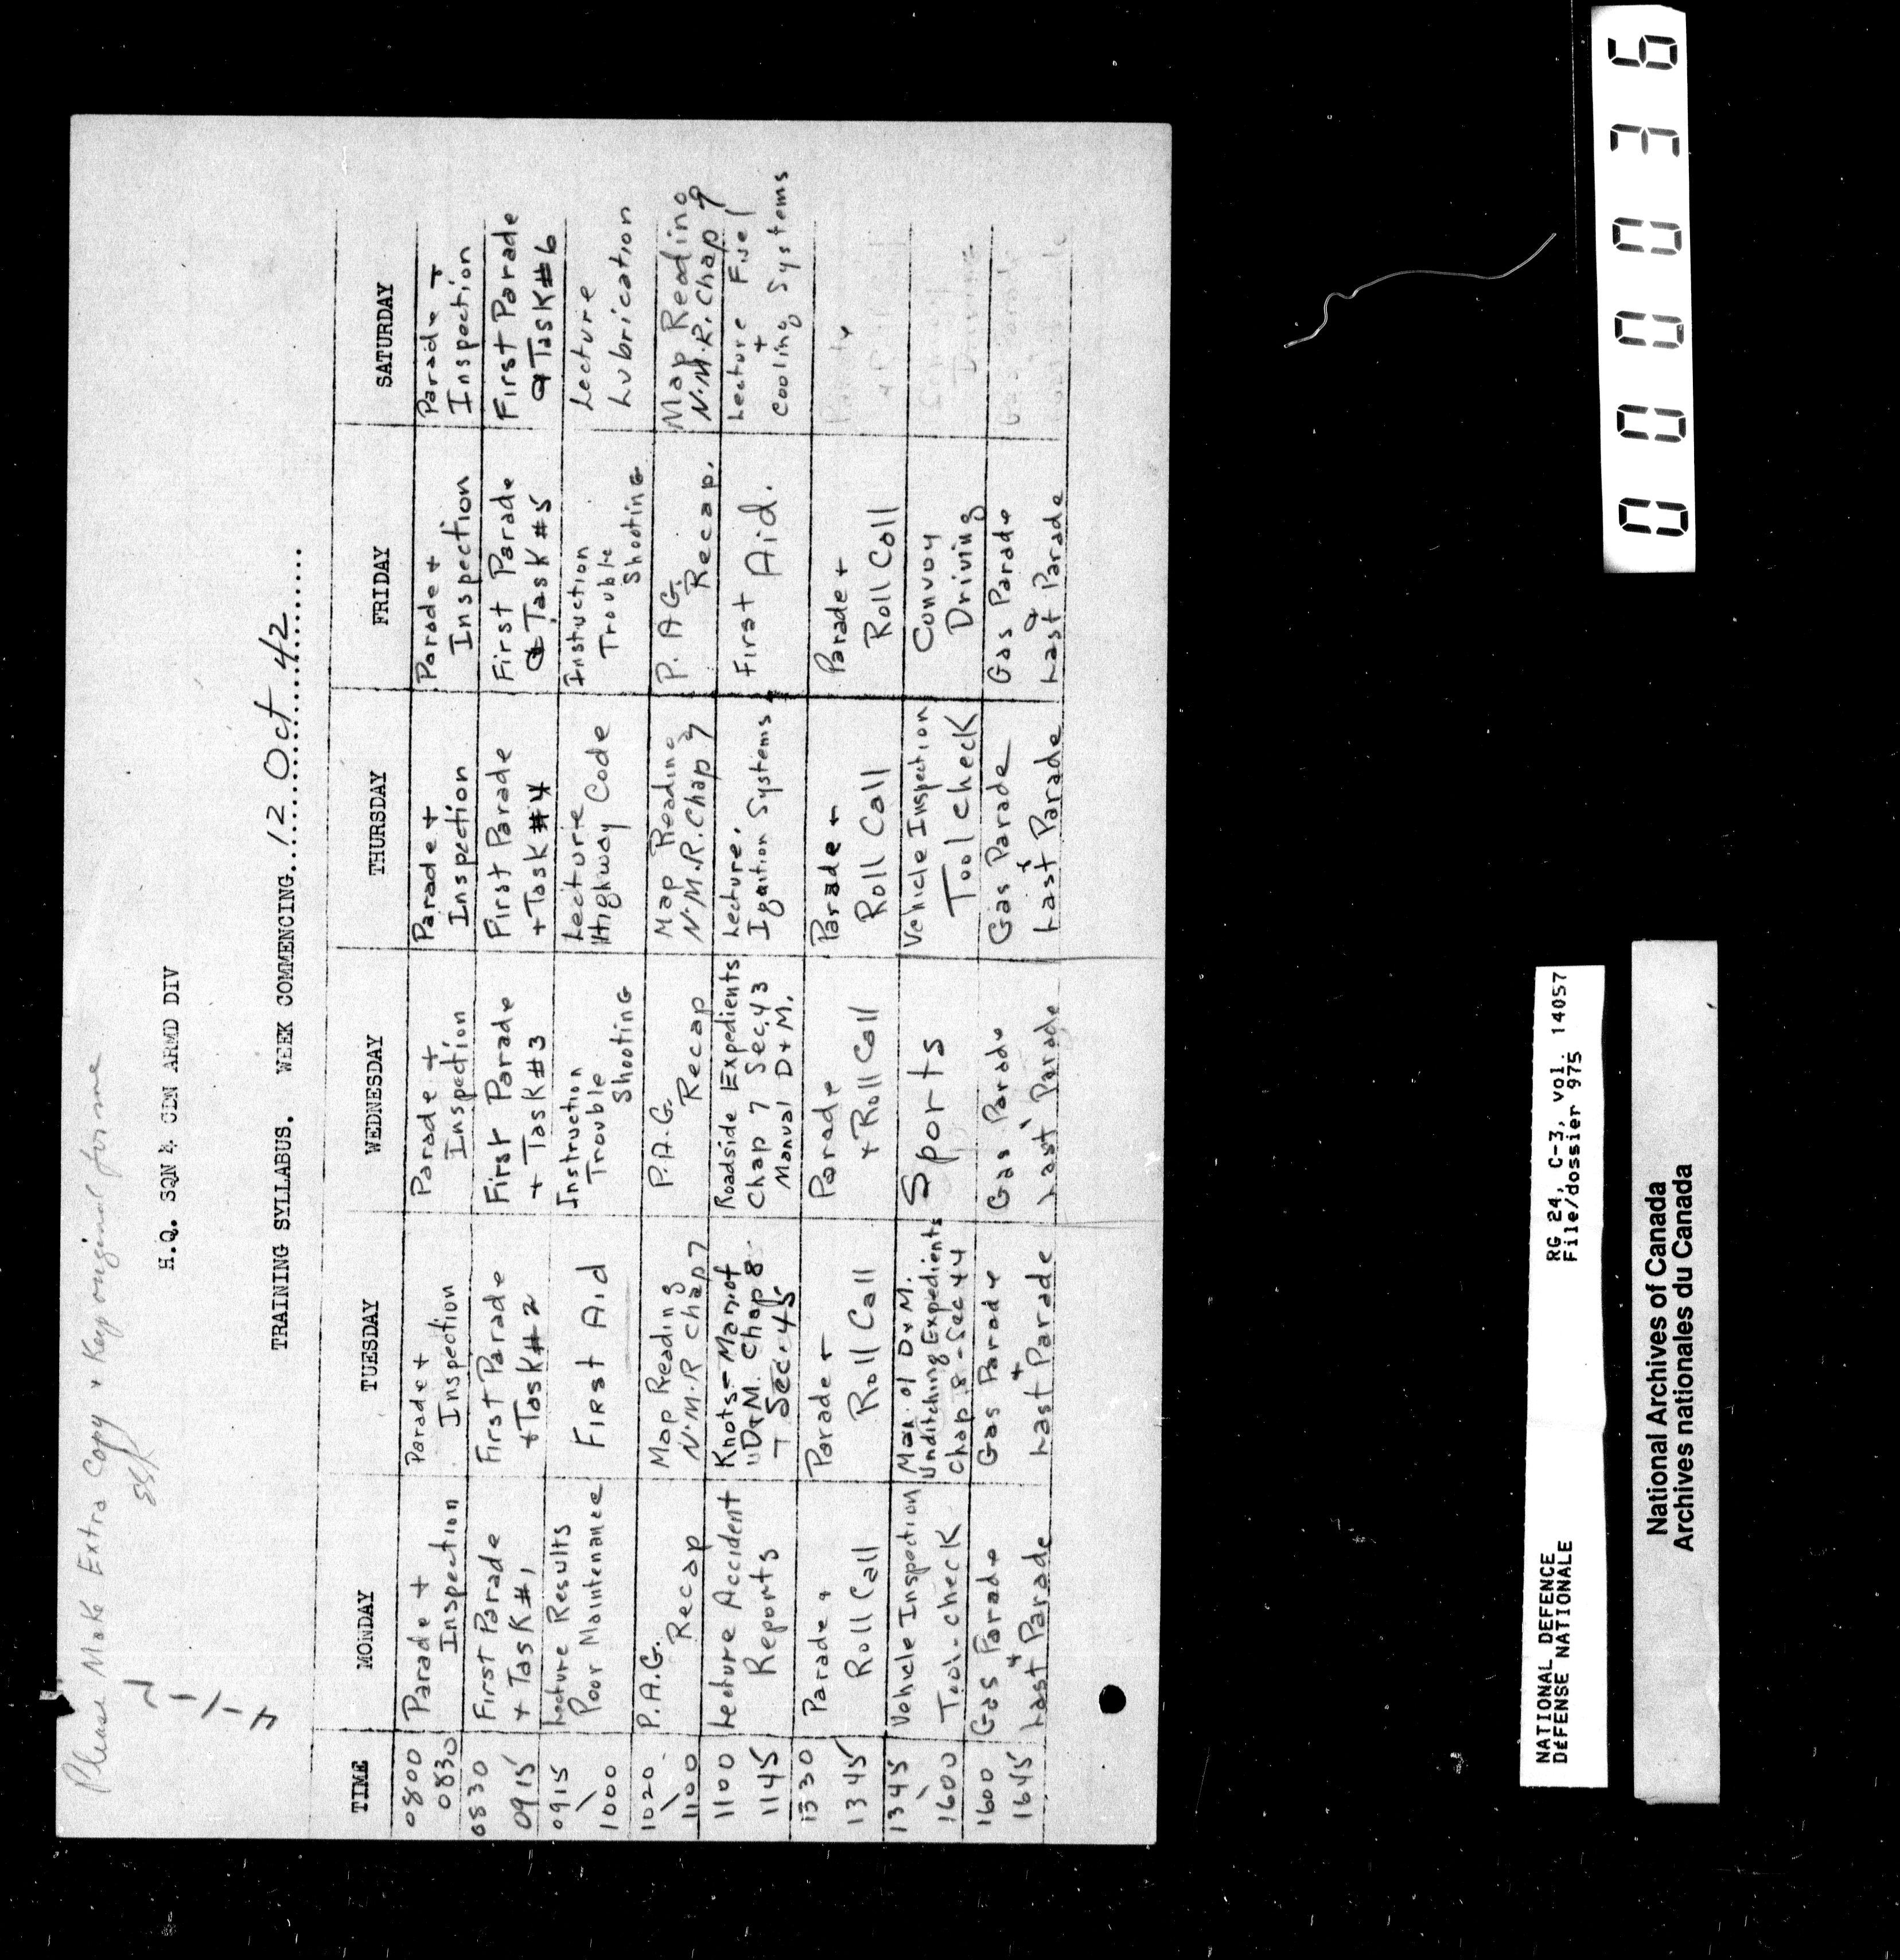 Please Make Extra Copy + Keep original for me
4-1-2
H.Q. SQN 4 CDN ARMD DIV
TRAINING SYLLABUS. WEEK COMMENCING..12 Oct 42......
TIME MONDAY TUESDAY WEDNESDAY THURSDAY FRIDAY SATURDAY
0800 Parade + Parade + Parade + Parade + Parade + Parade +
0830 Inspection Inspection Inspection Inspection Inspection Inspection
0830 First Parade First Parade First Parade First Parade First Parade First Parade
0915 + Task #1 + Task #2 + Task #3 + Task #4 + Task #5 + Task #6
0915 Lecture Results First Aid Instruction Lecture Instuction Lecture
1000 Poor Maintenance Trouble Shooting Highway Code Trouble Shooting Lubrication
1020 P.A.G. Map Reading P.A.G. Map Reading P.A.G. Map Reading
1100 Recap N.M.R Chap 7 Recap N.M.R. Chap 7 Recap. N.M.R. Chap 9
1100 Lecture Accident Knots - Man. of Roadside Expedients Lecture. First Aid. Lecture Fuel
1145 Reports "D+M. Chap 8 Chap 7 Sec. 43 Igaition Systems + Cooling Systems
Sec. 45 Manual D+M.
1330 Parade + Parade + Parade Parade + Parade +
1345 Roll Call Roll Call + Roll Call Roll Call Roll Call
1345 Vehicle Inspection Man. of D+M. Sports Vehicle Inspection Convoy
1600 Tool-check Unditching Expedients Tool check Driving
Chap. 8 - Sec 44
1600 Gas Parade Gas Parade Gas Parade Gas Parade Gas Parade
1645 + Last Parade + Last Parade + Last Parade + Last Parade + Last Parade
NATIONAL DEFENCE RG 24, C-3, vol. 14057
DÉFENSE NATIONALE File/dossier 975
National Archives of Canada
Archives nationales du Canada
000036